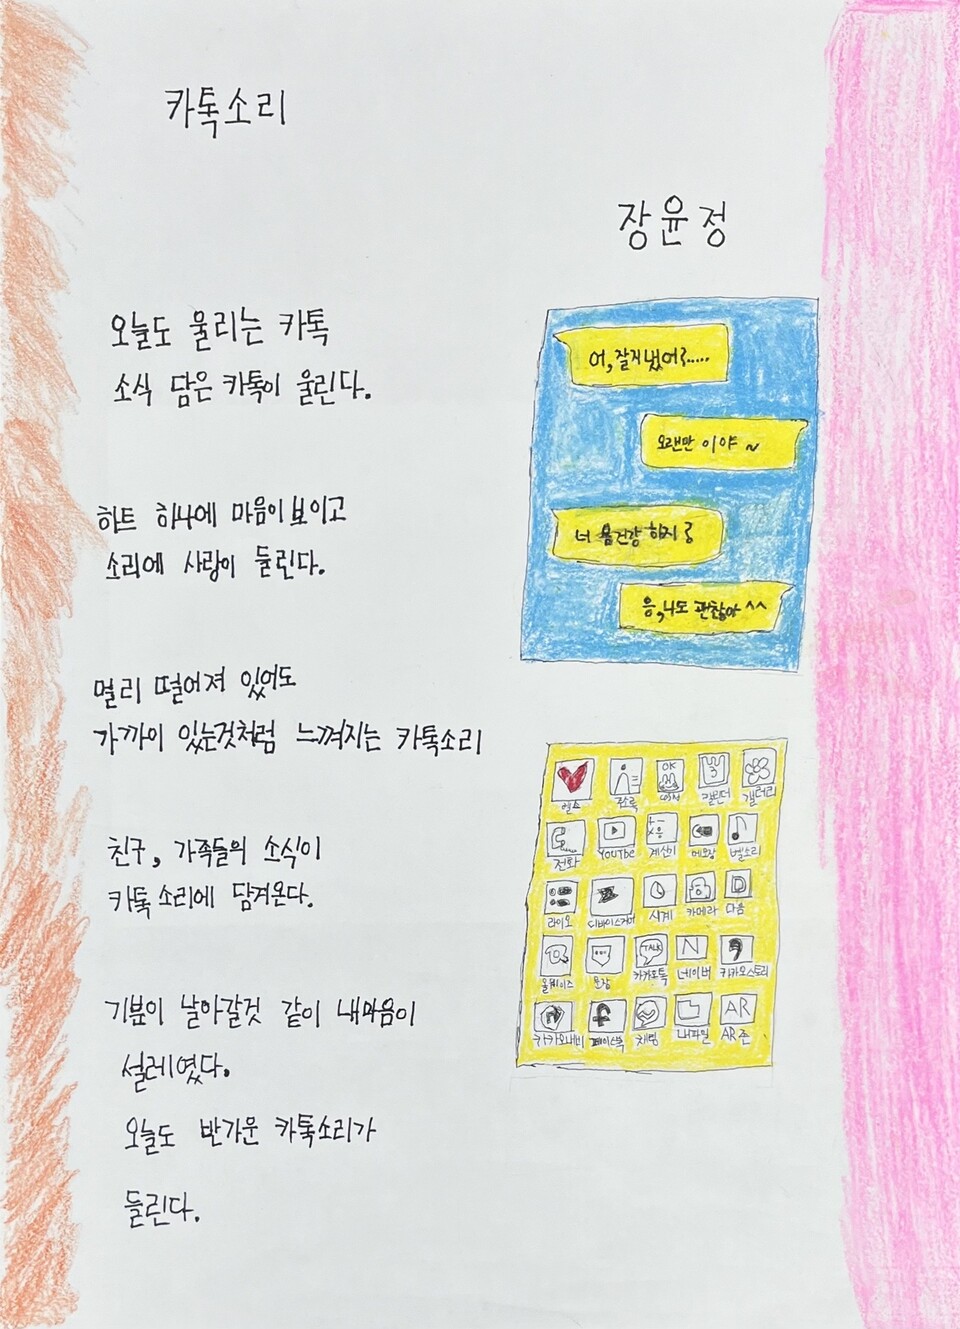 카톡소리
장윤정
오늘도 울리는 카톡
소식 담은 카톡이 울린다.
하트 하나에 마음이 보이고
소리에 사랑이 들린다.
멀리 떨어져 있어도
가까이 있는것처럼 느껴지는 카톡소리
친구, 가족들의 소식이
카톡 소리에 담겨온다.
기분이 날아갈것 같이 내마음이
설레였다.
오늘도 반가운 카톡소리가
들린다.
어, 잘지냈어?.....
오랜만 이야 ~
너 몸건강 하지?
응, 나도 괜찮아 ^^
OK
3
헬스 주소록 캘린더 갤러리
전화 YOUTbe 계산기 메모장 벨소리
D
라이오 디바이스케어 시계 카메라 다음
TALK N
올웨이즈 문장 카카오톡 네이버 카카오스토리
AR
카카오내비 페이스북 채팅 내파일 AR존